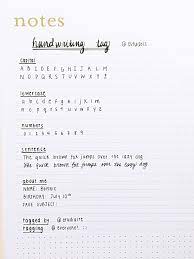 notes
handwriting tag
capital
A B C D E F G H I J K L M
N O P Q R S T U V W X Y Z
lowercase
a b c d e f g h i j k l m
n o p q r s t u v w x y z
numbers
0 1 2 3 4 5 6 7 8 9
sentence
The quick brown fox jumps over the lazy dog
the quick brown fox jumps over the lazy dog
about me
NAME:
BIRTHDAY: JULY
FAVE SUBJECT:
tagged by
tagging: @ everyone!